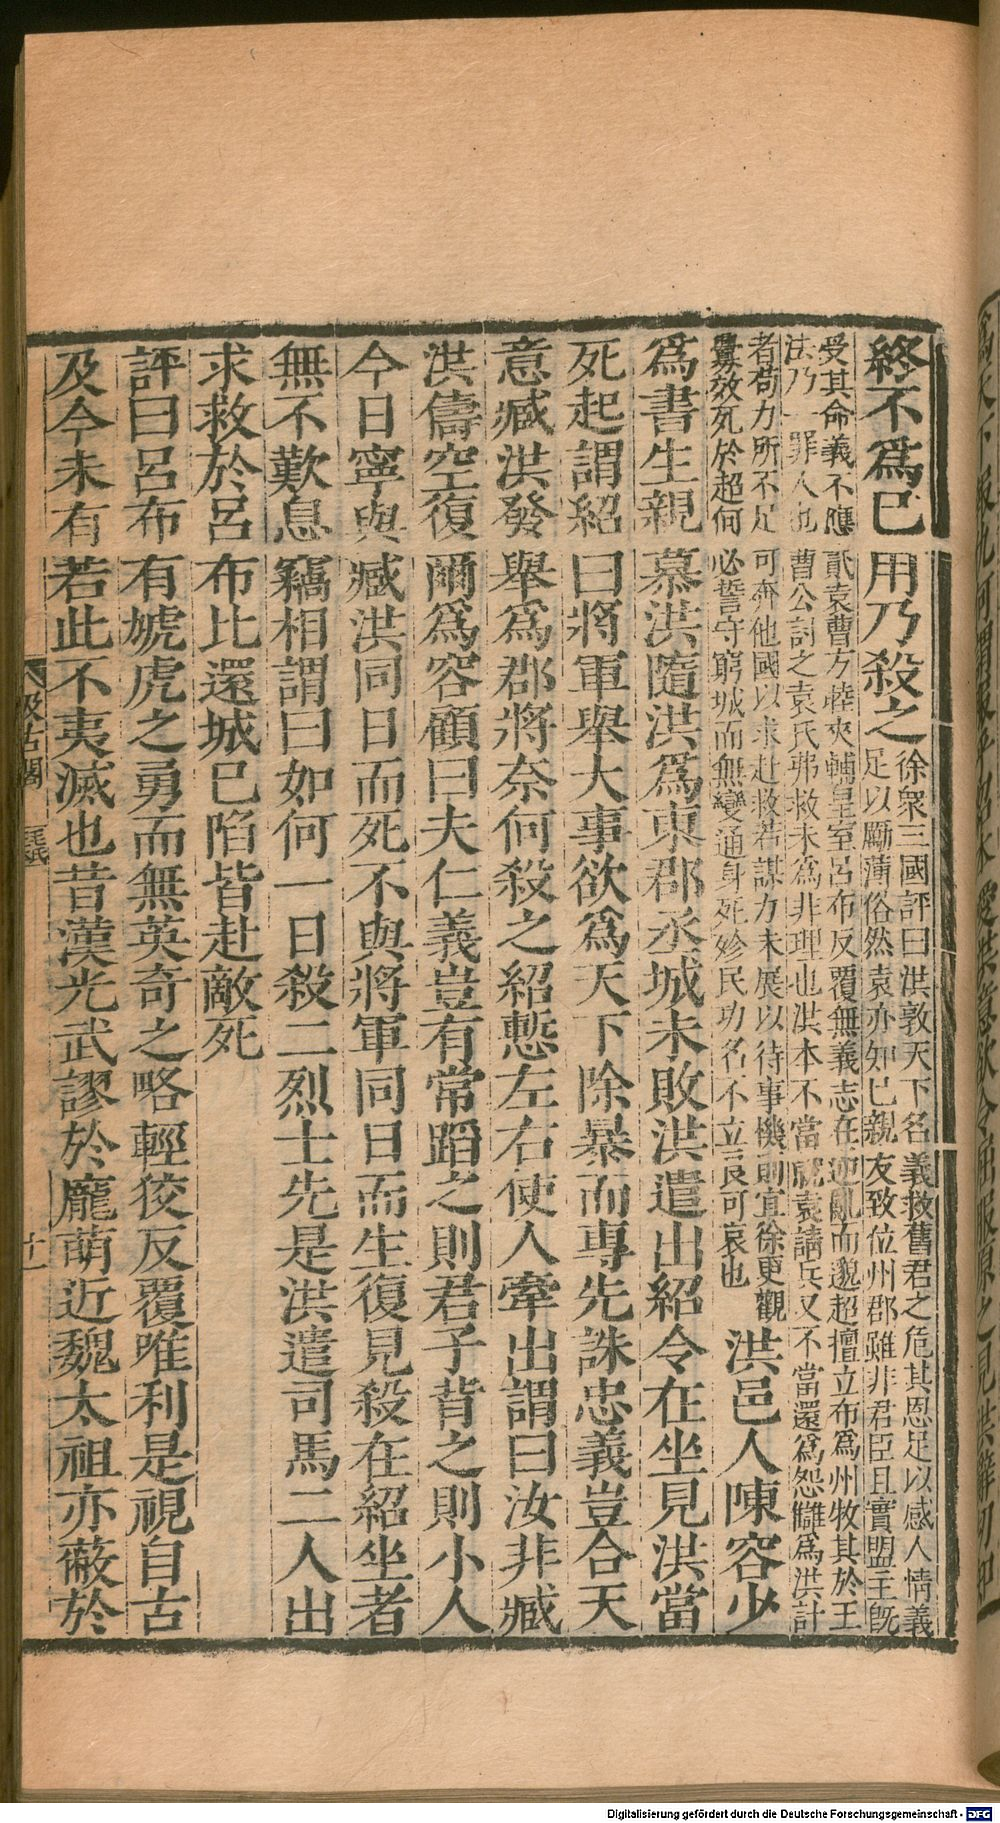 終不爲已用乃殺之
徐衆三國評曰洪敦天下名義救舊君之危其恩足以感人情義
足以勵薄俗然袁亦知已親友致位州郡雖非君臣且實盟主旣
受其命義不應貳袁曹方睦夾輔皇室呂布反覆無義志在逆亂而邈超擅立布爲州牧其於王
法乃一罪人也曹公討之袁氏弗救未爲非理也洪本不當就袁請兵又不當還爲怨讎爲洪計
者苟力所不足可奔他國以求赴救若謀力未展以待事機則宜徐更觀
釁效死於超何必誓守窮城而無變通身死殄民功名不立良可哀也
洪邑人陳容少
爲書生親慕洪隨洪爲東郡丞城未敗洪遣出紹令在坐見洪當
死起謂紹曰將軍舉大事欲爲天下除暴而專先誅忠義豈合天
意臧洪發舉爲郡將奈何殺之紹慙左右使人牽出謂曰汝非臧
洪儔空復爾爲容顧曰夫仁義豈有常蹈之則君子背之則小人
今日寧與臧洪同日而死不與將軍同日而生復見殺在紹坐者
無不歎息竊相謂曰如何一日殺二烈士先是洪遣司馬二人出
求救於呂布比還城已陷皆赴敵死
評曰呂布有虓虎之勇而無英奇之略輕狡反覆唯利是視自古
及今未有若此不夷滅也昔漢光武謬於龐萌近魏太祖亦蔽於
汲古閣
毛氏
十一
Digitalisierung gefördert durch die Deutsche Forschungsgemeinschaft - DFG